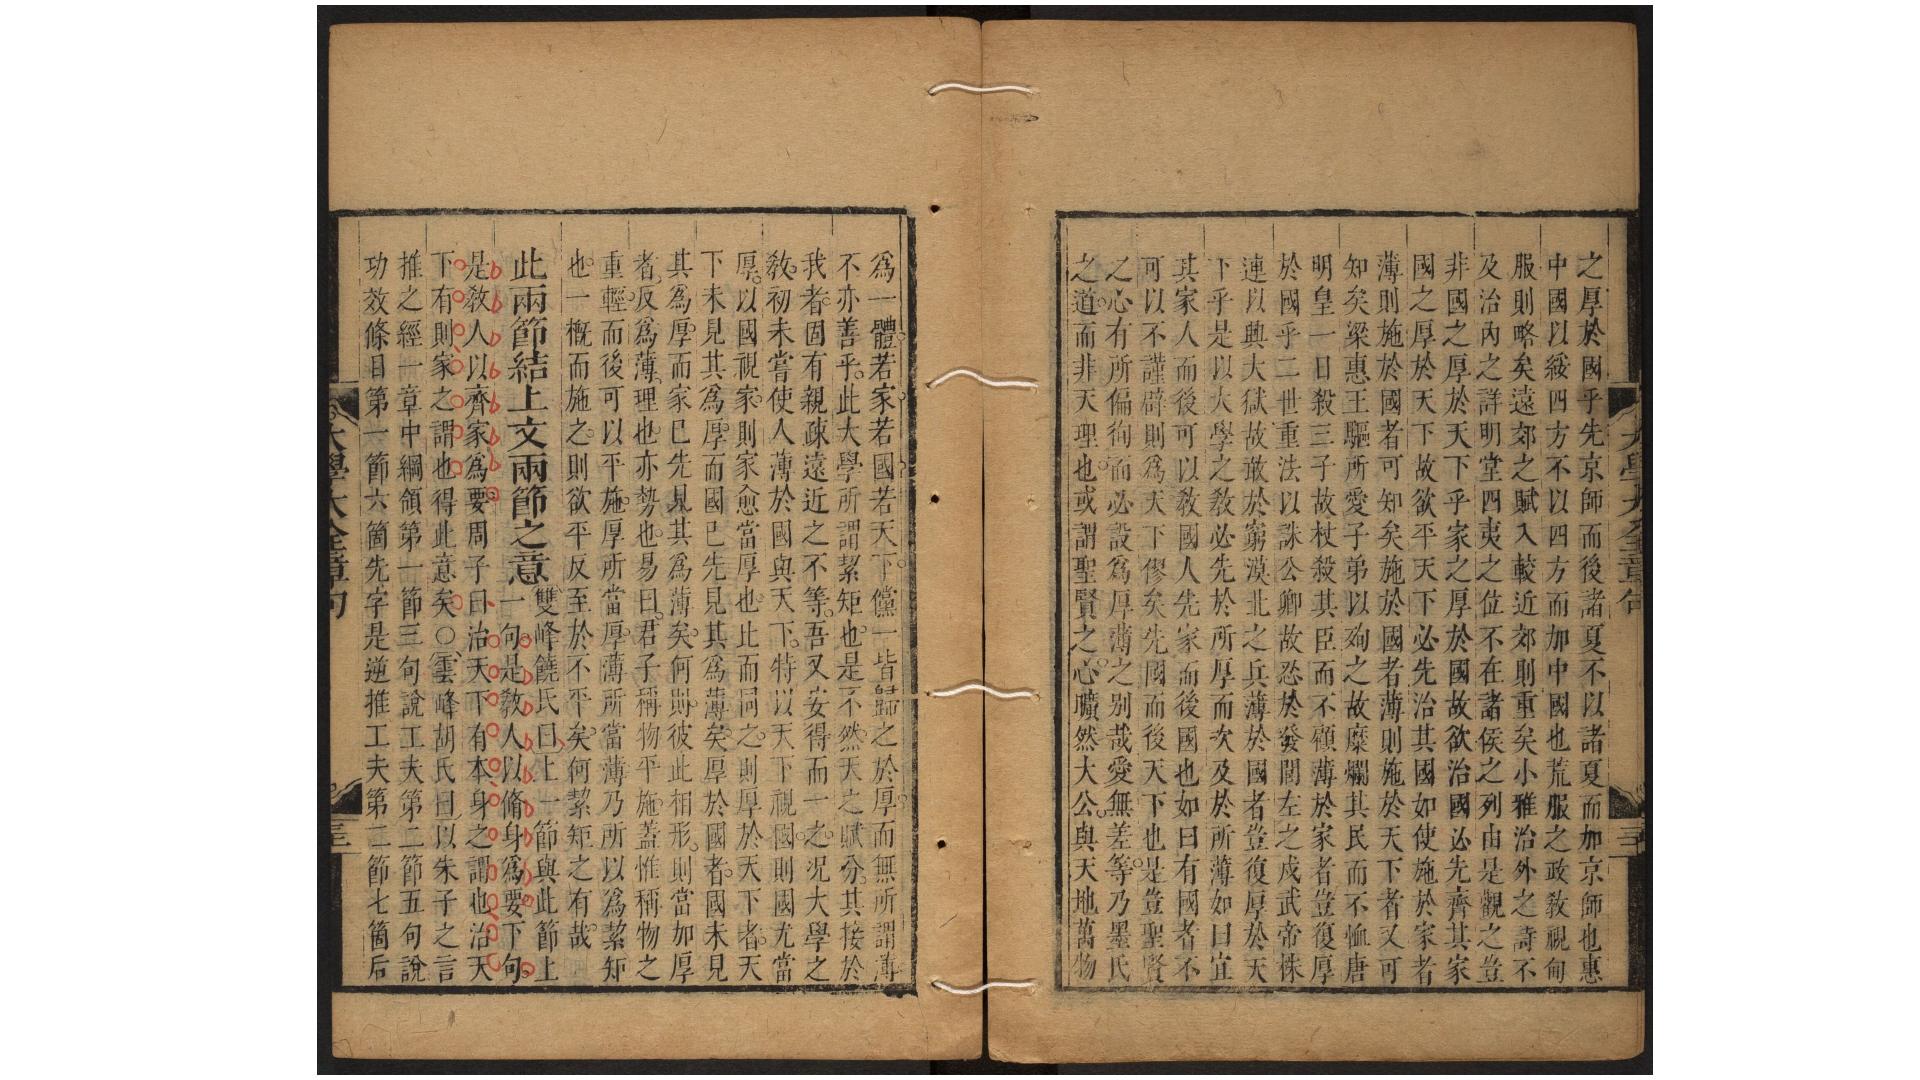 之厚於國乎先京師而後諸夏不以諸夏而加京師也惠
中國以綏四方不以四方而加中國也荒服之政教視甸
服則略矣遠郊之賦入較近郊則重矣小雅治外之詩不
及治內之詳明堂四夷之位不在諸侯之列由是觀之豈
非國之厚於天下乎家之厚於國故欲治國必先齊其家
國之厚於天下故欲平天下必先治其國如使施於家者
薄則施於國者可知矣施於國者薄則施於天下者又可
知矣梁惠王驅所愛子弟以殉之故糜爛其民而不恤唐
明皇一日殺三子故杖殺其臣而不顧薄於家者豈復厚
於國乎二世重法以誅公卿故忍於發閭左之戍武帝株
連以興大獄故敢於窮漠北之兵薄於國者豈復厚於天
下乎是以大學之教必先於所厚而次及於所薄如曰宜
其家人而後可以教國人先家而後國也如曰有國者不
可以不謹辟則為天下僇矣先國而後天下也是豈聖賢
之心有所偏徇而必設為厚薄之別哉愛無差等乃墨氏
之道而非天理也或謂聖賢之心曠然大公與天地萬物
大學大全章句
三十
為一體若家若國若天下儻一皆歸之於厚而無所謂薄
不亦善乎此大學所謂絜矩也是不然天之賦分其接於
我者固有親疎遠近之不等吾又安得而一之況大學之
教初未嘗使人薄於國與天下特以天下視國則國尤當
厚以國視家則家愈當厚也此而同之則厚於天下者天
下未見其為厚而國已先見其為薄矣厚於國者國未見
其為厚而家已先見其為薄矣何則彼此相形則當加厚
者反為薄理也亦勢也易曰君子稱物平施蓋惟稱物之
重輕而後可以平施厚所當厚薄所當薄乃所以為絜矩
也一概而施之則欲平反至於不平矣何絜矩之有哉
此兩節結上文兩節之意
雙峰饒氏曰上一節與此節上
一句是教人以脩身為要下句
是教人以齊家為要周子曰治天下有本身之謂也治天
下有則家之謂也得此意矣○雲峰胡氏曰以朱子之言
推之經一章中綱領第一節三句說工夫第二節五句說
功效條目第一節六箇先字是逆推工夫第二節七箇后
大學大全章句